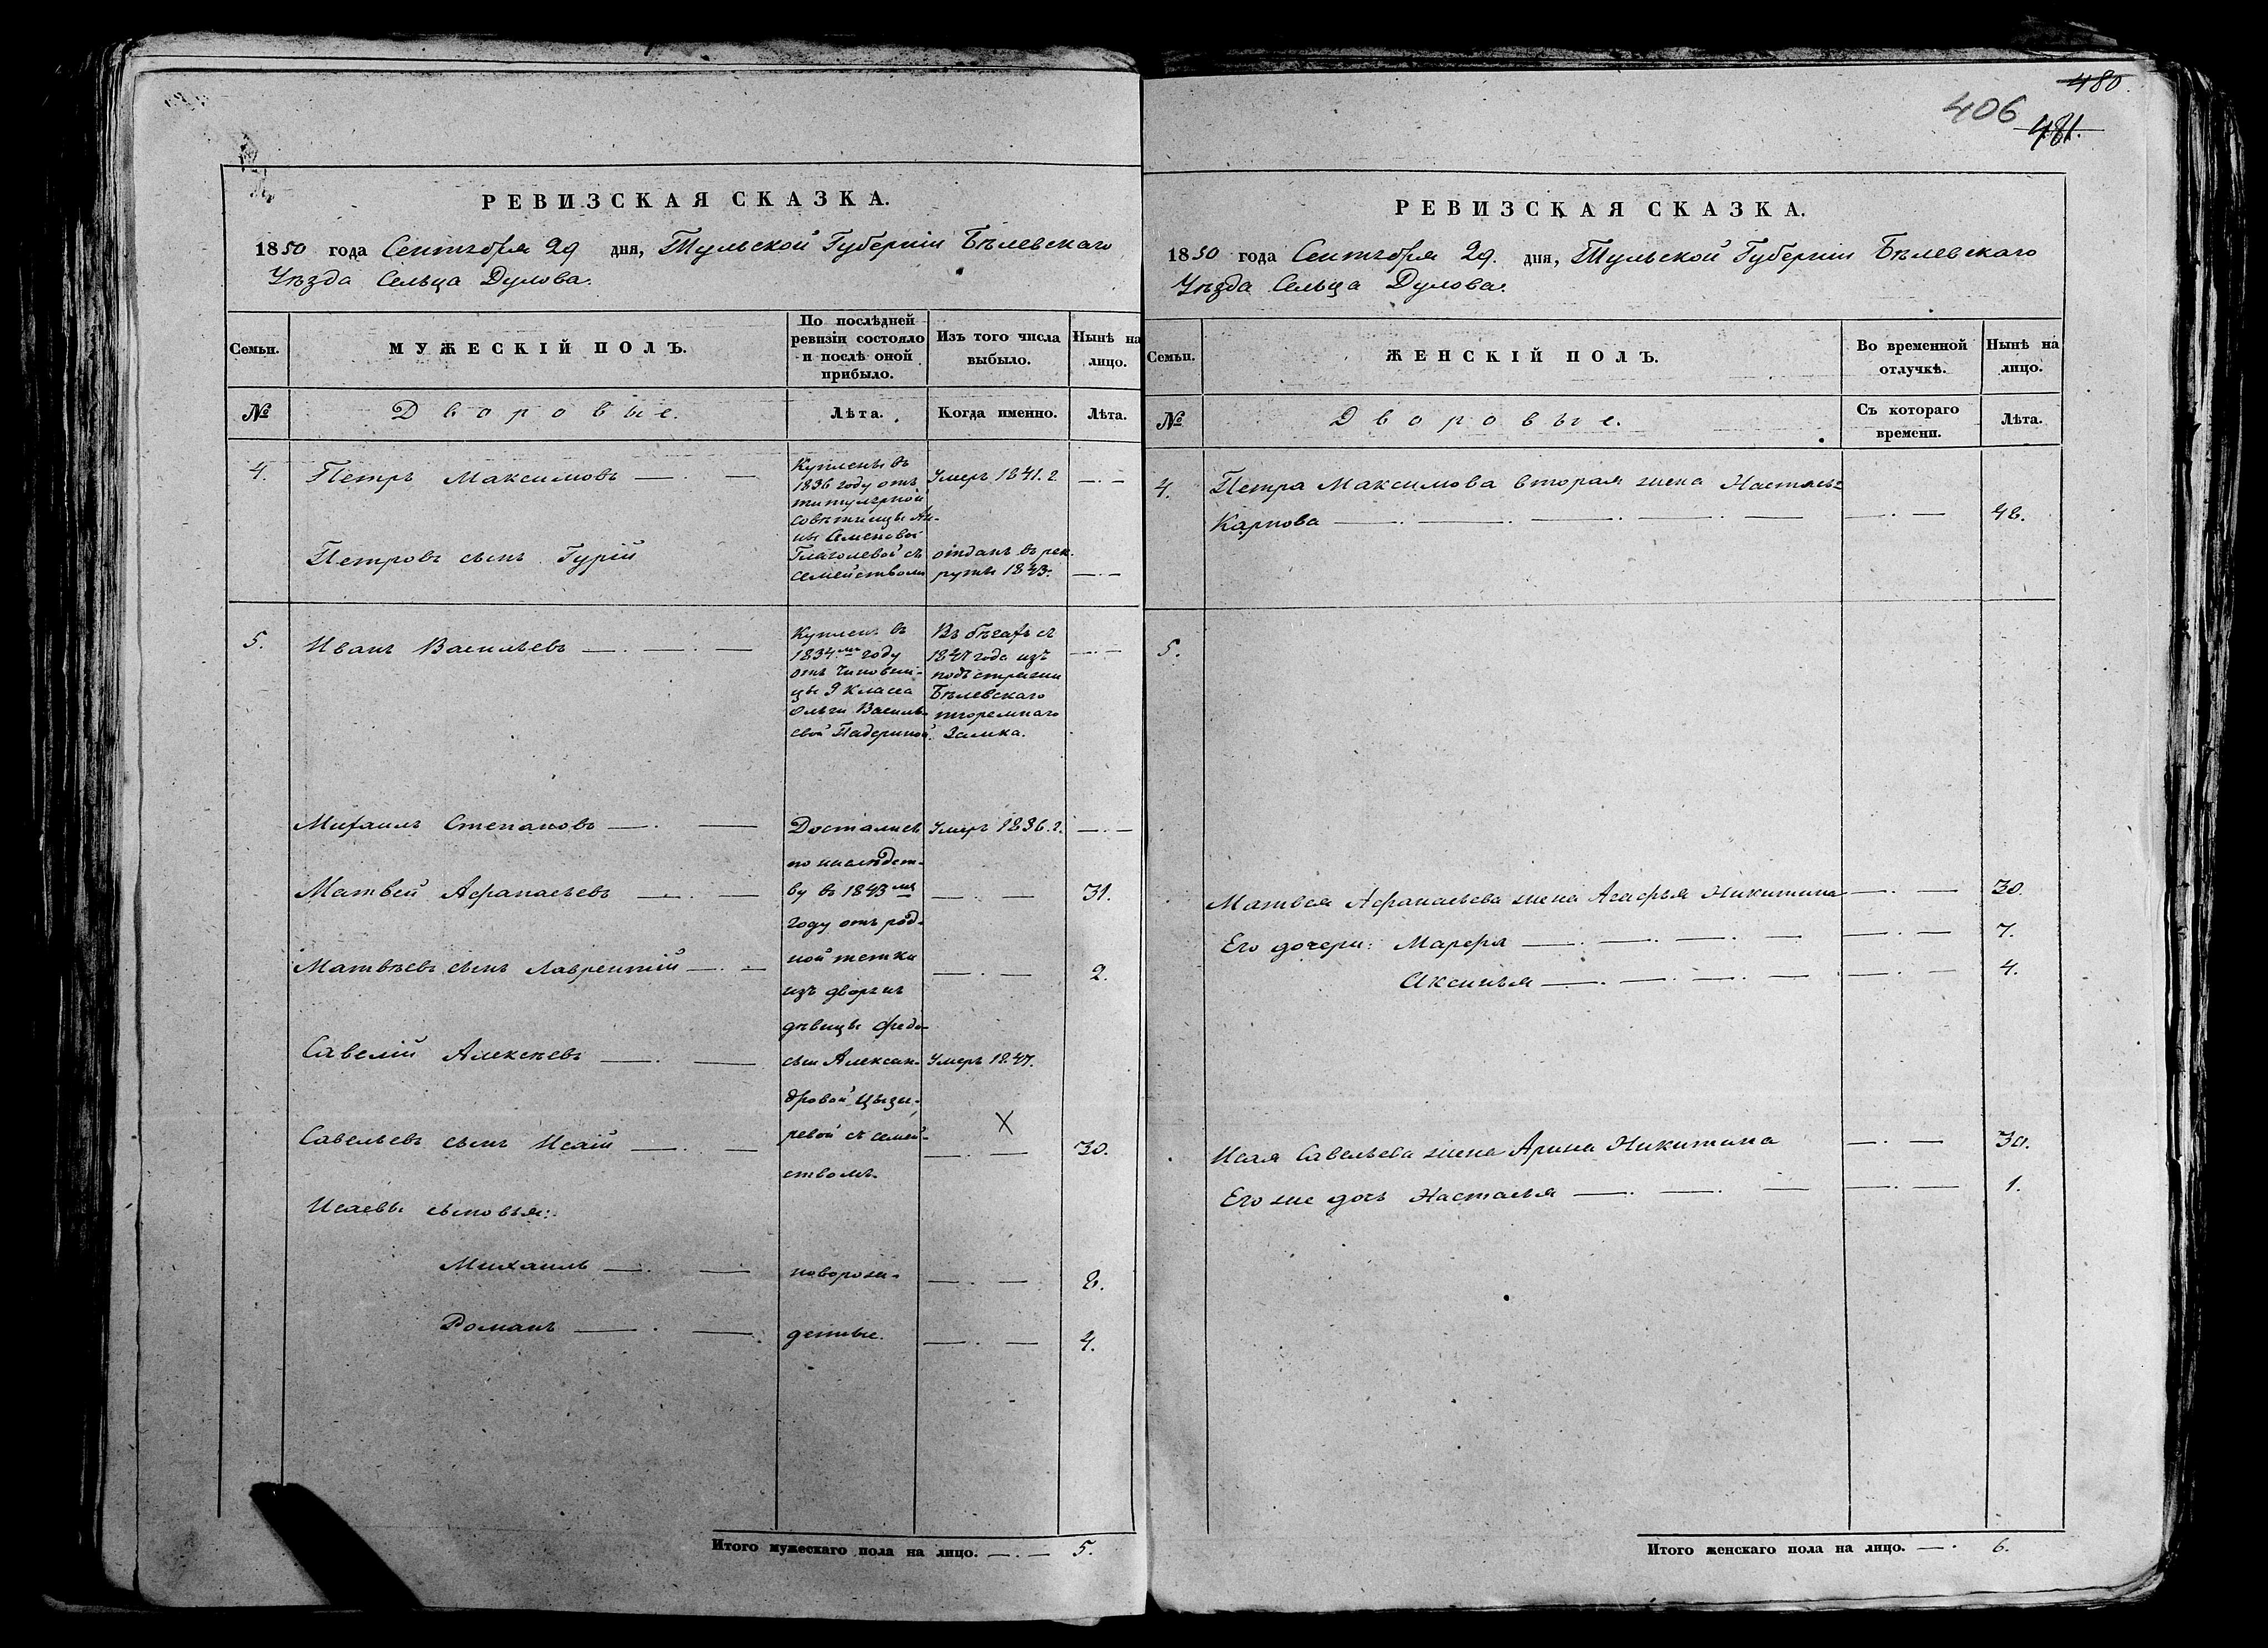 480.
406
481.
РЕВИЗСКАЯ СКАЗКА.
1850 года Сентября 29 дня, Тульской Губернiи Бѣлевскаго
Уѣзда Сельца Дулова.
Семьи.
МУЖЕСКIЙ ПОЛЪ.
По послѣдней
ревизiи состояло
и послѣ оной
прибыло.
Изъ того числа
выбыло.
Нынѣ на
лицо.
№
Дворовые.
Лѣта.
Когда именно.
Лѣта.
4.
Петръ Максимовъ
Куплены въ
1836 году отъ
титулярной
совѣтницы Ан-
ны Семеновой
Глаголевой съ
семействомъ
Умеръ 1841. г
Петровъ сынъ Гурiй
отданъ въ рек-
руты 1843.
5.
Иванъ Васильевъ
Купленъ въ
1834мъ году
отъ Чиновни-
цы 9 класса
Ольги Василь-
евой Падериной.
Въ бѣгахъ съ
1847 года изъ
подъ стражи
Бѣлевскаго
тюремнаго
Замка.
Михаилъ Степановъ
Достались
по наслѣдст-
ву въ 1843мъ
году отъ род-
ной тетки
изъ дворянъ
дѣвицы Федо-
сьи Алексан-
дровой Цызы-
ревой съ семей-
ствомъ.
Умеръ 1836. г.
Матвей Афанасьевъ
31.
Матвѣевъ сынъ Лаврентiй
2.
Савелiй Алексѣевъ
Умеръ 1847.
Савельевъ сынъ Исаiй
X
30.
Исаевы сыновья:
Михаилъ
новорож-
Романъ
денные.
4.
Итого мужескаго пола на лицо. 5.
РЕВИЗСКАЯ СКАЗКА.
1850 года Сентября 29. дня, Тульской Губернiи Бѣлевскаго
Уѣзда Сельца Дулова.
Семьи.
ЖЕНСКIЙ ПОЛЪ.
Во временной
отлучкѣ.
Нынѣ на
лицо.
№
Дворовые.
Съ котораго
времени.
Лѣта.
4.
Петра Максимова вторая жена Настась-
Карпова
5.
Матвея Афанасьева жена Агафья Никитина
30.
Его дочери: Марфа
7.
Аксинья
4.
Исая Савельева жена Арина Никитина
30.
Его же дочь Настасья
1.
Итого женскаго пола на лицо. 6.